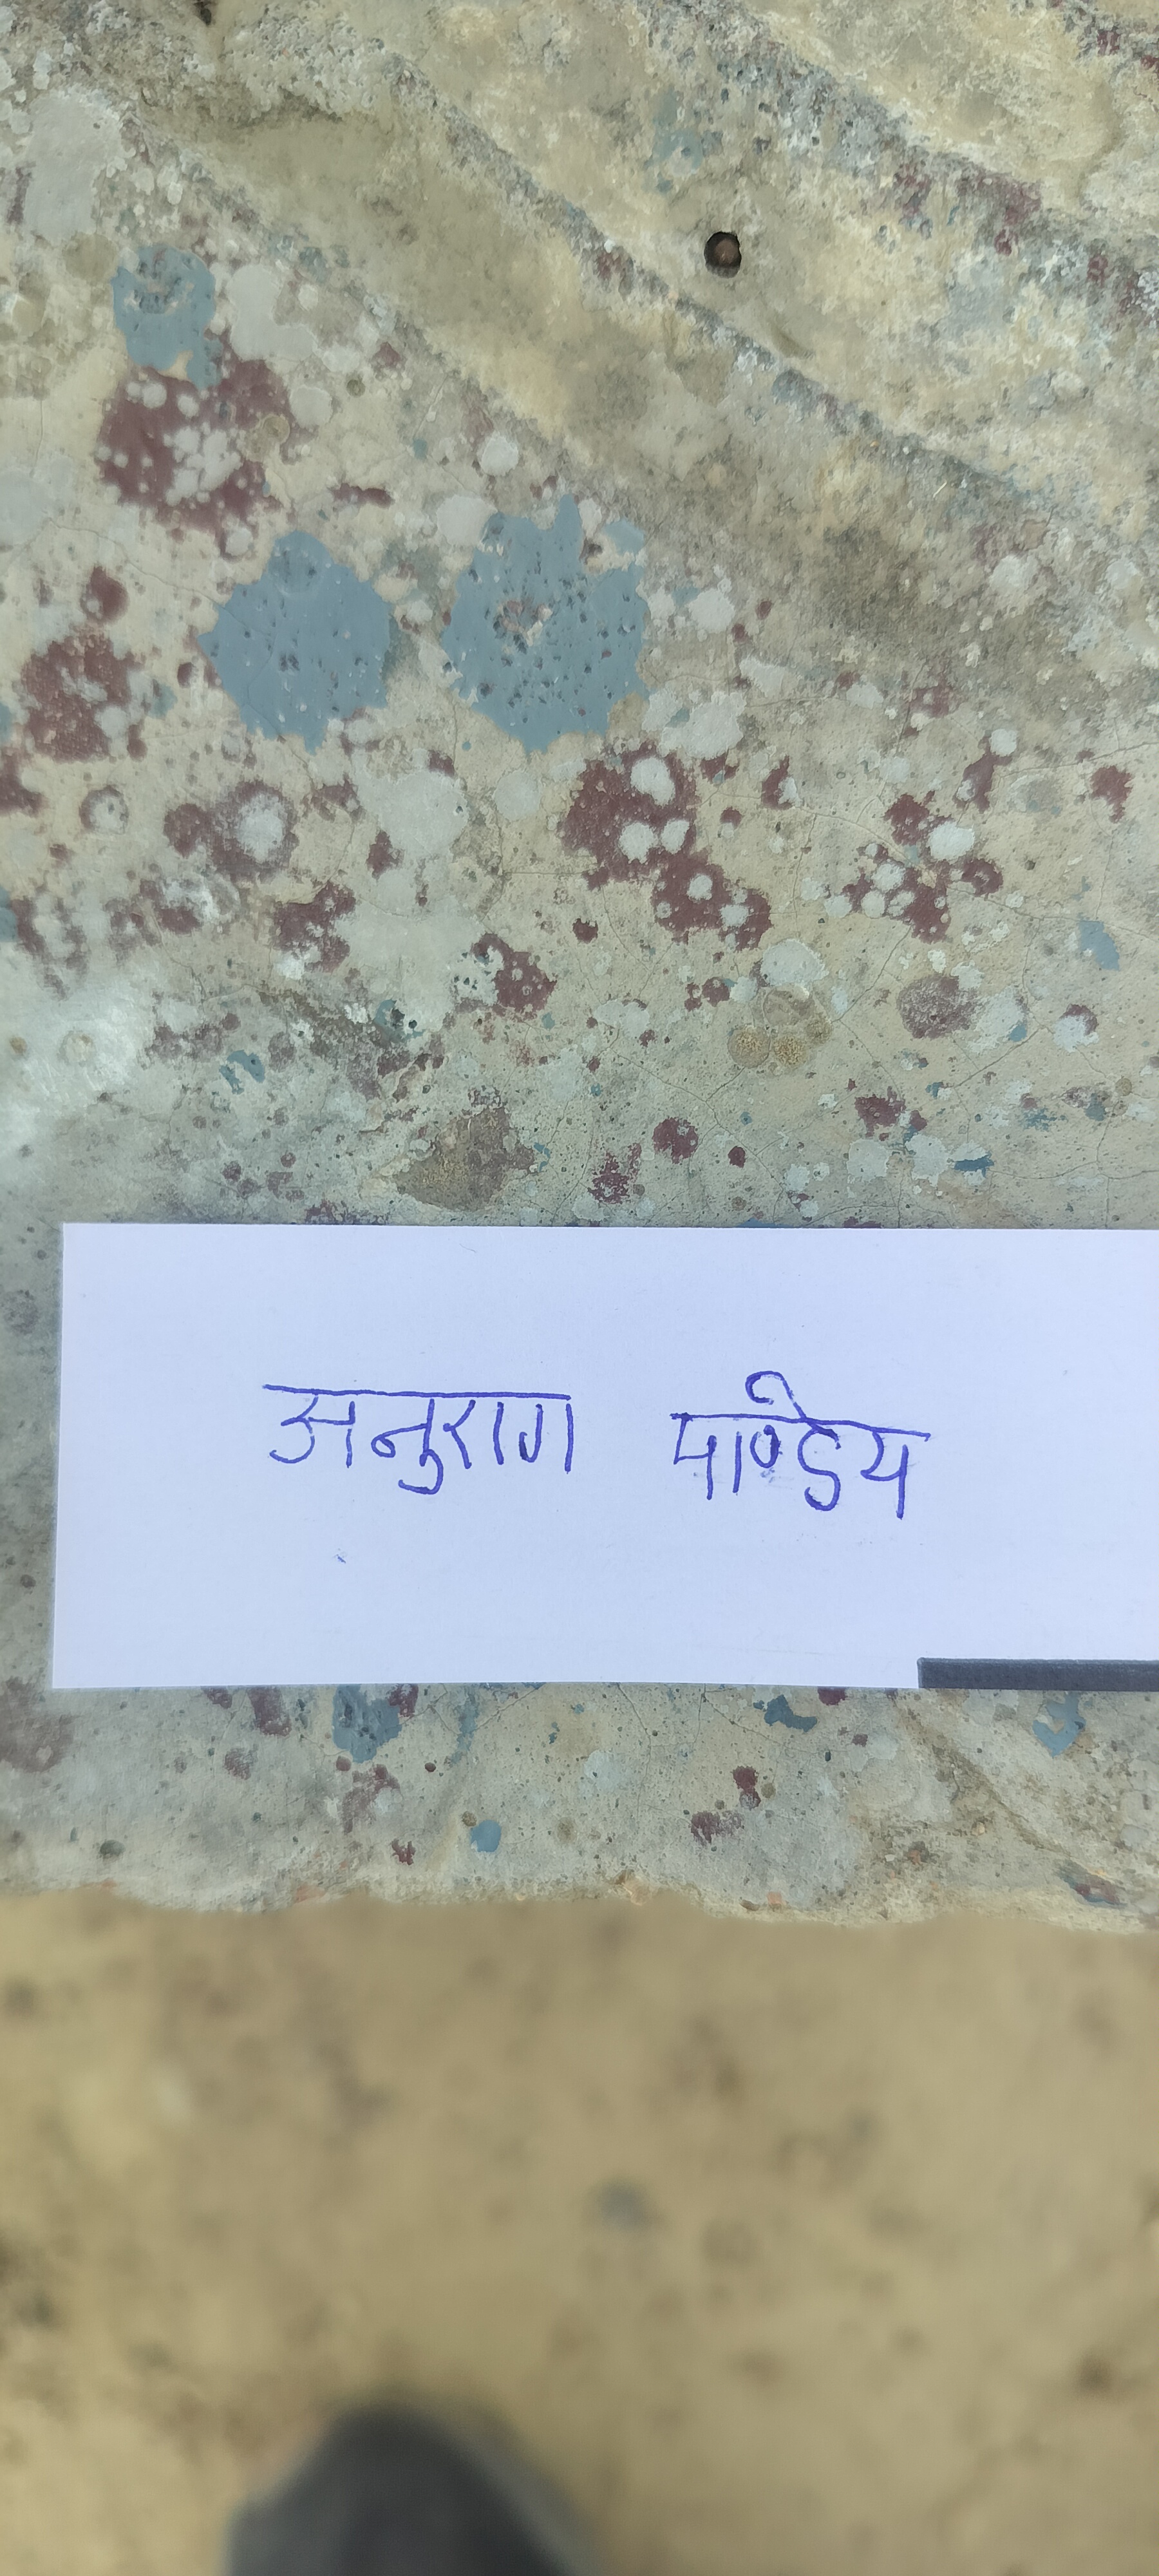 अनुराग पाण्डेय